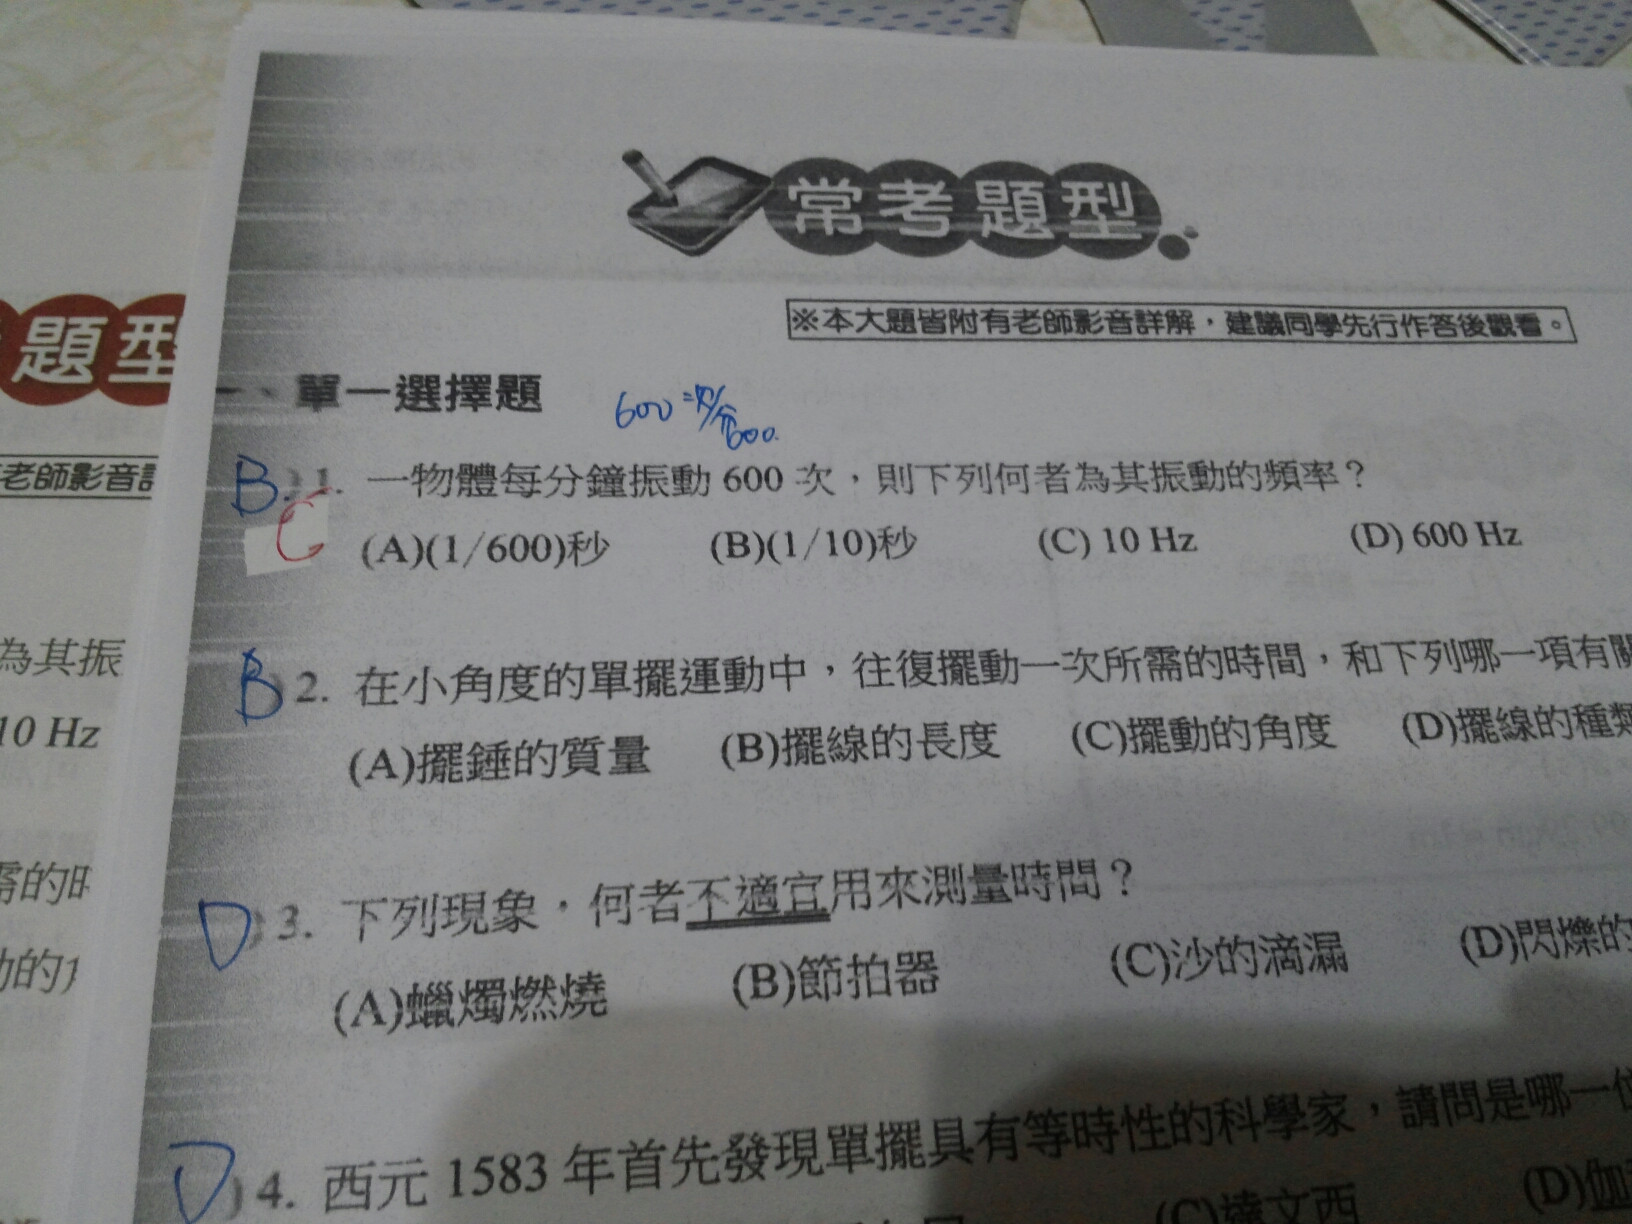 常考題型
※本大題皆附有老師影音詳解，建議同學先行作答後觀看。
題型
一、單一選擇題
600 次/分
600
老師影音
B. 1. 一物體每分鐘振動 600 次，則下列何者為其振動的頻率？
C
(A)(1/600)秒 (B)(1/10)秒 (C) 10 Hz (D) 600 Hz
為其振
B 2. 在小角度的單擺運動中，往復擺動一次所需的時間，和下列哪一項有關
10 Hz
(A)擺錘的質量 (B)擺線的長度 (C)擺動的角度 (D)擺線的種類
需的時
D )3. 下列現象，何者不適宜用來測量時間？
動的
(A)蠟燭燃燒 (B)節拍器 (C)沙的滴漏 (D)閃爍的
D )4. 西元 1583 年首先發現單擺具有等時性的科學家，請問是哪一位
(C)達文西 (D)伽